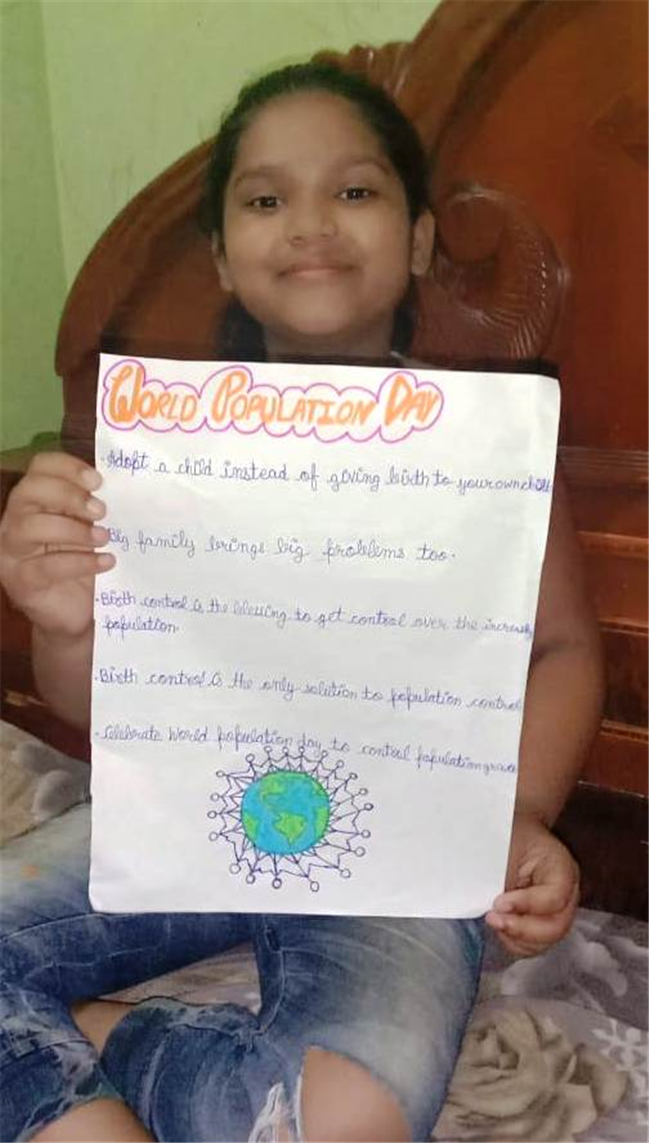 WORLD POPULATION DAY
- Adopt a child instead of giving birth to your own child
Big family brings big problems too.
- Birth control is the blessing to get control over the increasing
population.
- Birth control is the only solution to population control
- Celebrate World population day to control population